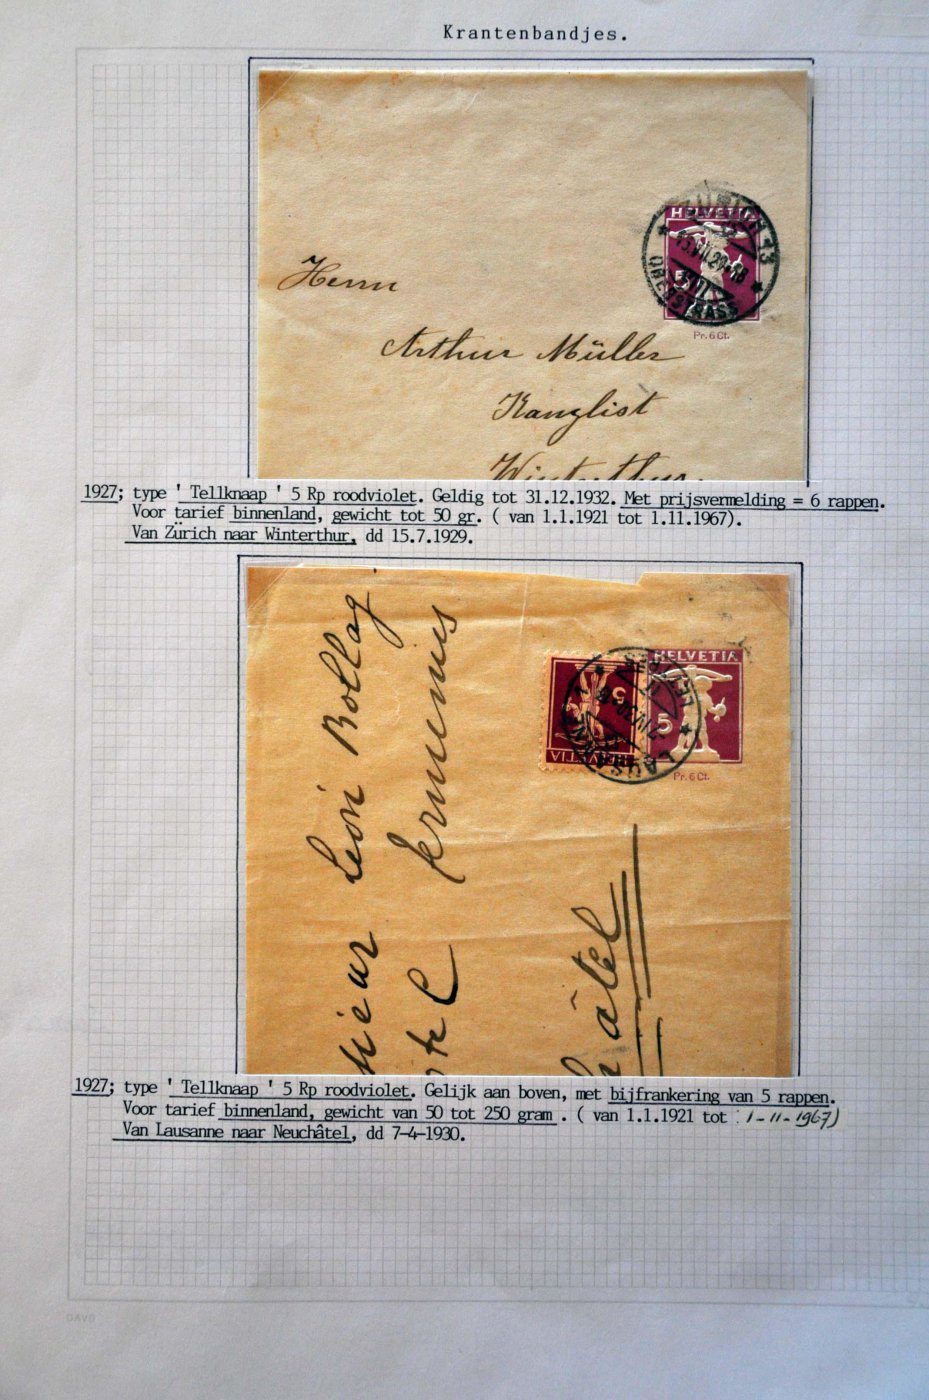 Krantenbandjes.
HELVETIA
5
Pr. 6 Ct.
OBERSTRASS
Herrn
Arthur Müller
Kanzlist
Winterthur.
1927; type ' Tellknaap ' 5 Rp roodviolet. Geldig tot 31.12.1932. Met prijsvermelding = 6 rappen.
Voor tarief binnenland, gewicht tot 50 gr. ( van 1.1.1921 tot 1.11.1967).
Van Zürich naar Winterthur, dd 15.7.1929.
HELVETIA
5
HELVETIA
5
LAUSANNE
Pr. 6 Ct.
sieur Léon Bollag
te C
âtel
1927; type ' Tellknaap ' 5 Rp roodviolet. Gelijk aan boven, met bijfrankering van 5 rappen.
Voor tarief binnenland, gewicht van 50 tot 250 gram . ( van 1.1.1921 tot 1-11-1967)
Van Lausanne naar Neuchâtel, dd 7-4-1930.
DAVO